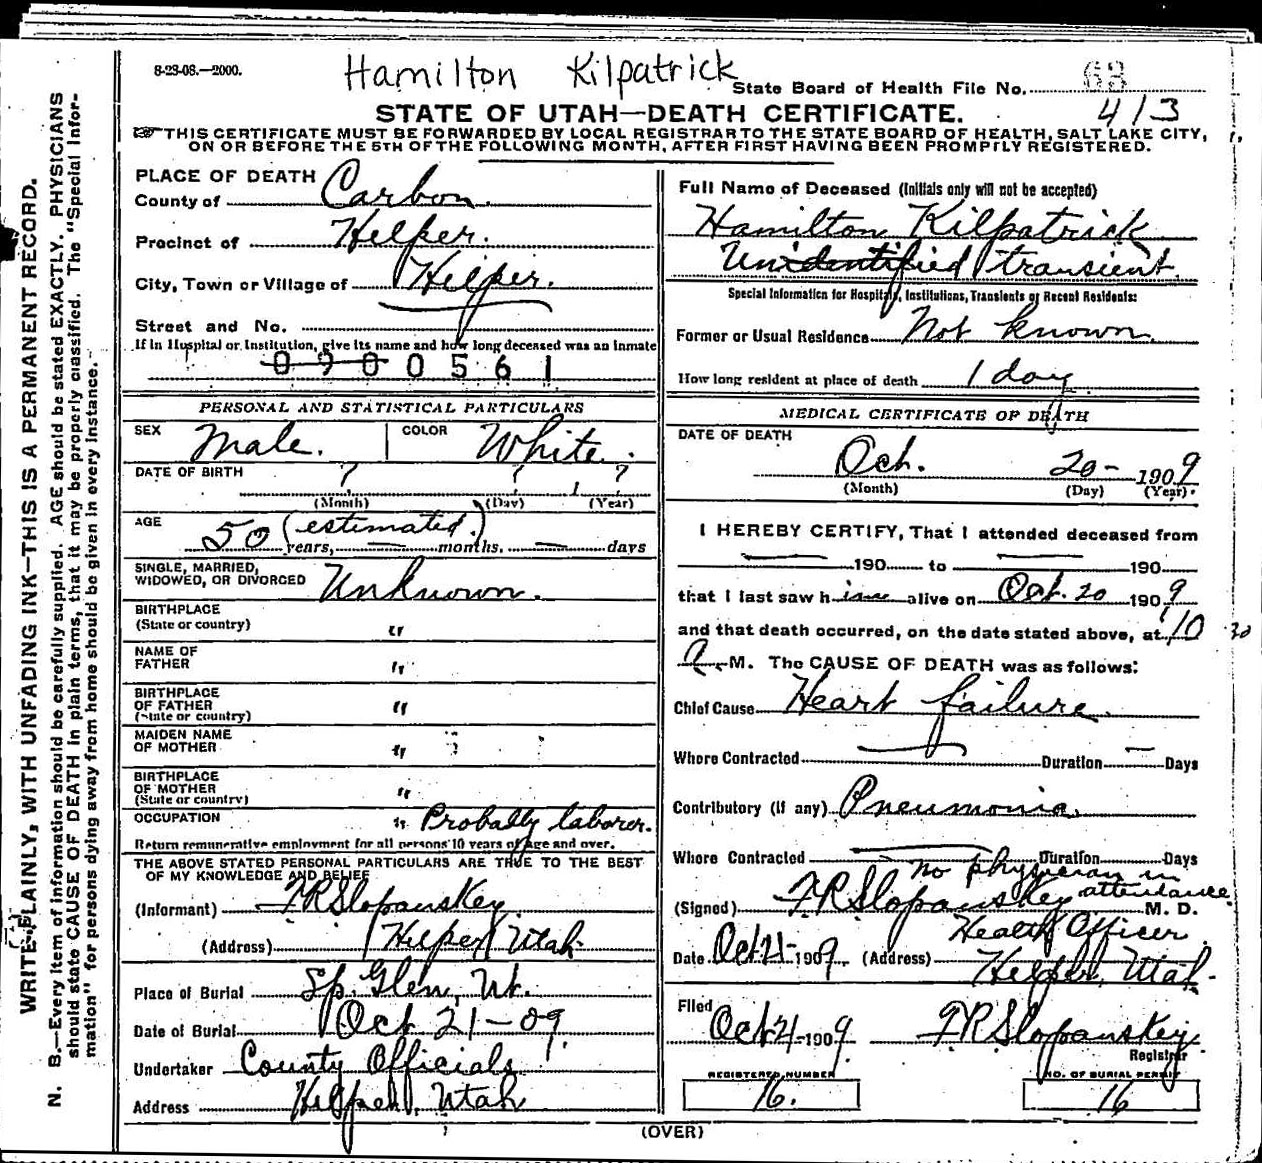 8-23-08.—2000.
Hamilton Kilpatrick
State Board of Health File No. 63
413
STATE OF UTAH—DEATH CERTIFICATE.
THIS CERTIFICATE MUST BE FORWARDED BY LOCAL REGISTRAR TO THE STATE BOARD OF HEALTH, SALT LAKE CITY,
ON OR BEFORE THE 5TH OF THE FOLLOWING MONTH, AFTER FIRST HAVING BEEN PROMPTLY REGISTERED.
WRITE PLAINLY, WITH UNFADING INK—THIS IS A PERMANENT RECORD.
N. B.—Every item of information should be carefully supplied. AGE should be stated EXACTLY. PHYSICIANS
should state CAUSE OF DEATH in plain terms, that it may be properly classified. The "Special Infor-
mation" for persons dying away from home should be given in every instance.
PLACE OF DEATH
County of Carbon.
Precinct of Helper.
City, Town or Village of Helper.
Street and No.
If in Hospital or Institution, give its name and how long deceased was an Inmate
0900561
PERSONAL AND STATISTICAL PARTICULARS
SEX Male. COLOR White.
DATE OF BIRTH ? ? 1 ?
(Month) (Day) (Year)
AGE 50 (estimated.)
years, — months, — days
SINGLE, MARRIED,
WIDOWED, OR DIVORCED Unknown.
BIRTHPLACE
(State or country) "
NAME OF
FATHER "
BIRTHPLACE
OF FATHER
(State or country) "
MAIDEN NAME
OF MOTHER "
BIRTHPLACE
OF MOTHER
(State or country) "
OCCUPATION " Probably laborer.
Return remunerative employment for all persons 10 years of age and over.
THE ABOVE STATED PERSONAL PARTICULARS ARE TRUE TO THE BEST
OF MY KNOWLEDGE AND BELIEF
(Informant) F R Slopanskey
(Address) Helper, Utah
Place of Burial Sp. Glen, Ut.
Date of Burial Oct 21-09
Undertaker County Officials
Address Helper, Utah
Full Name of Deceased (Initials only will not be accepted)
Hamilton Kilpatrick
Unidentified transient
Special Information for Hospitals, Institutions, Transients or Recent Residents:
Former or Usual Residence Not known
How long resident at place of death 1 day
MEDICAL CERTIFICATE OF DEATH
DATE OF DEATH
Oct. 20- 1909
(Month) (Day) (Year).
I HEREBY CERTIFY, That I attended deceased from
— 190 to — 190
that I last saw him alive on Oct. 20 1909
and that death occurred, on the date stated above, at 10 30
M. The CAUSE OF DEATH was as follows:
Chief Cause Heart failure.
Where Contracted — Duration — Days
Contributory (if any) Pneumonia.
Where Contracted — Duration Days
no physician in
attendance
(Signed) F R Slopanskey M. D.
Health Officer
Date Oct 21- 1909 (Address) Helper, Utah.
Filed Oct 21- 1909 F R Slopanskey
Registrar
REGISTERED NUMBER NO. OF BURIAL PERMIT
16. 16
(OVER)